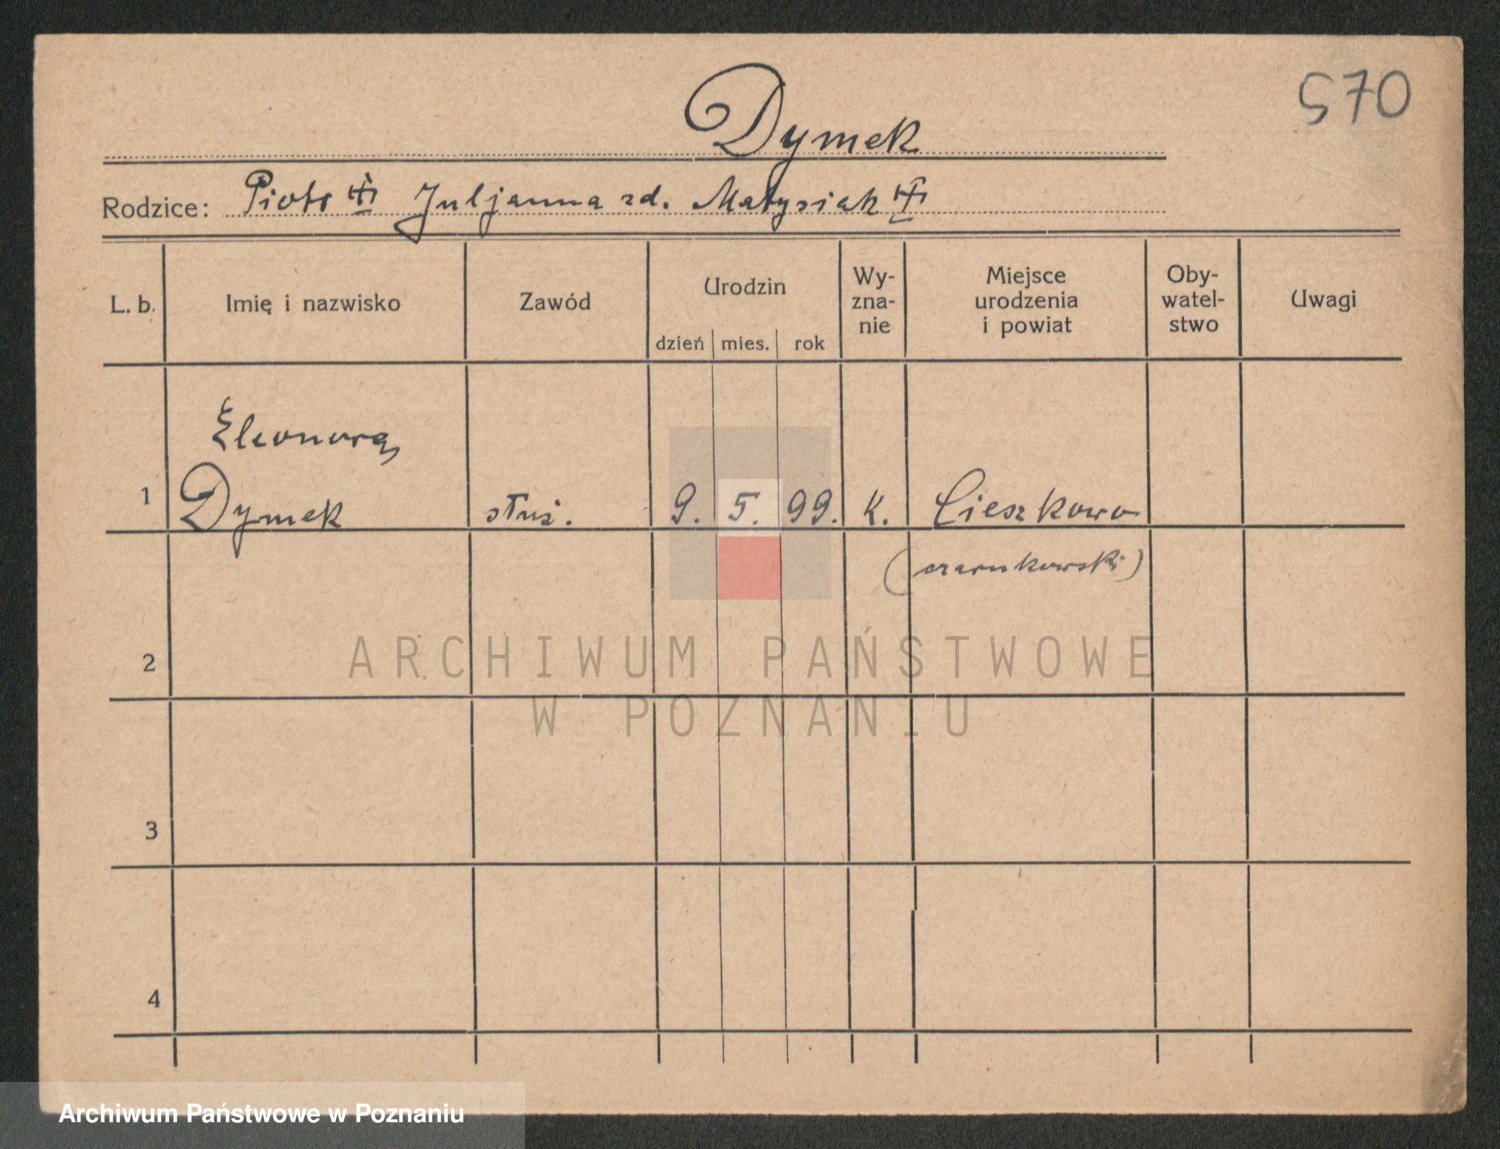 570
Dymek
Rodzice: Piotr Juljanna zd. Matysiak
L. b. Imię i nazwisko Zawód Urodzin dzień mies. rok Wy-zna-nie Miejsce urodzenia i powiat Oby-watel-stwo Uwagi
Eleonora
1 Dymek służ. 9. 5. 99. k. Cieszkowo
(czarnkowski)
2
ARCHIWUM PAŃSTWOWE
W POZNANIU
3
4
Archiwum Państwowe w Poznaniu